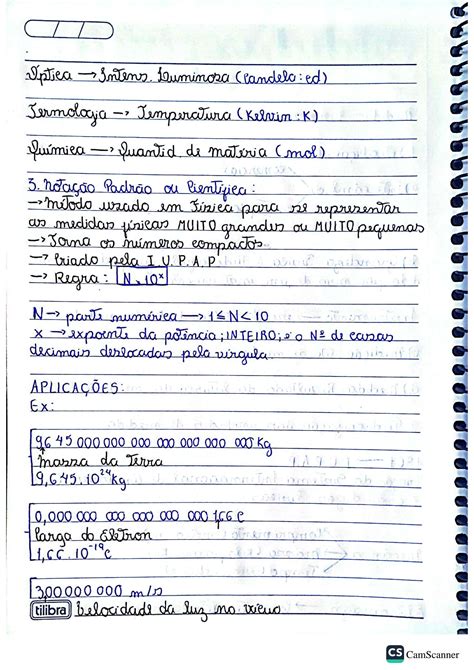 Óptica → Intens. Luminosa (Candela: cd)
Termologia → Temperatura (Kelvin: K)
Química → Quantid. de matéria (mol)
3. Notação Padrão ou Científica:
→ Método usado em Física para se representar
as medidas físicas MUITO grandes ou MUITO pequenas
→ Torna os números compactos
→ Criado pela I.U.P.A.P
→ Regra: N x 10ˣ
N → parte numérica → 1 ≤ N < 10
x → expoente da potência; INTEIRO; é o Nº de casas
decimais deslocadas pela vírgula.
APLICAÇÕES:
Ex:
9645 000 000 000 000 000 000 000 Kg
Massa da Terra
9,645.10²⁴ Kg
0,000 000 000 000 000 000 166 C
Carga do Elétron
1,66.10⁻¹⁹ C
300 000 000 m/s
tilibra Velocidade da luz no vácuo
CS CamScanner